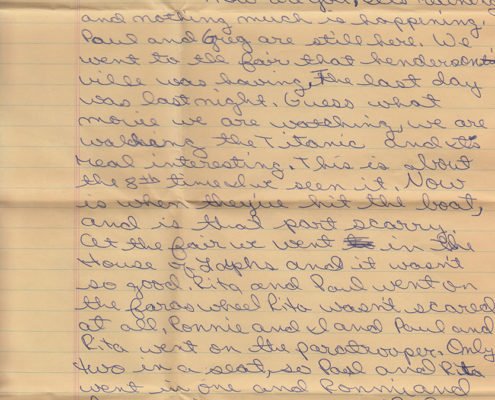 and nothing much is happening.
Paul and Greg are still here. We
went to the fair that henderson
ville was having, The last day
was last night. Guess what
movie we are watching, we are
walking the Titanic and its
real interesting. This is about
the 8th time I've seen it. Now
is when they've hit the boat,
and is that part scarry.
At the fair we went in the
House of Laphs and it wasn't
so good. Rita and Paul went on
the faraswheel Rita wasn't scared
at all. Ronnie and I and Paul and
Rita went on the paratrooper. Only
two in a seat, so Paul and Rita
went in one and Ronnie and